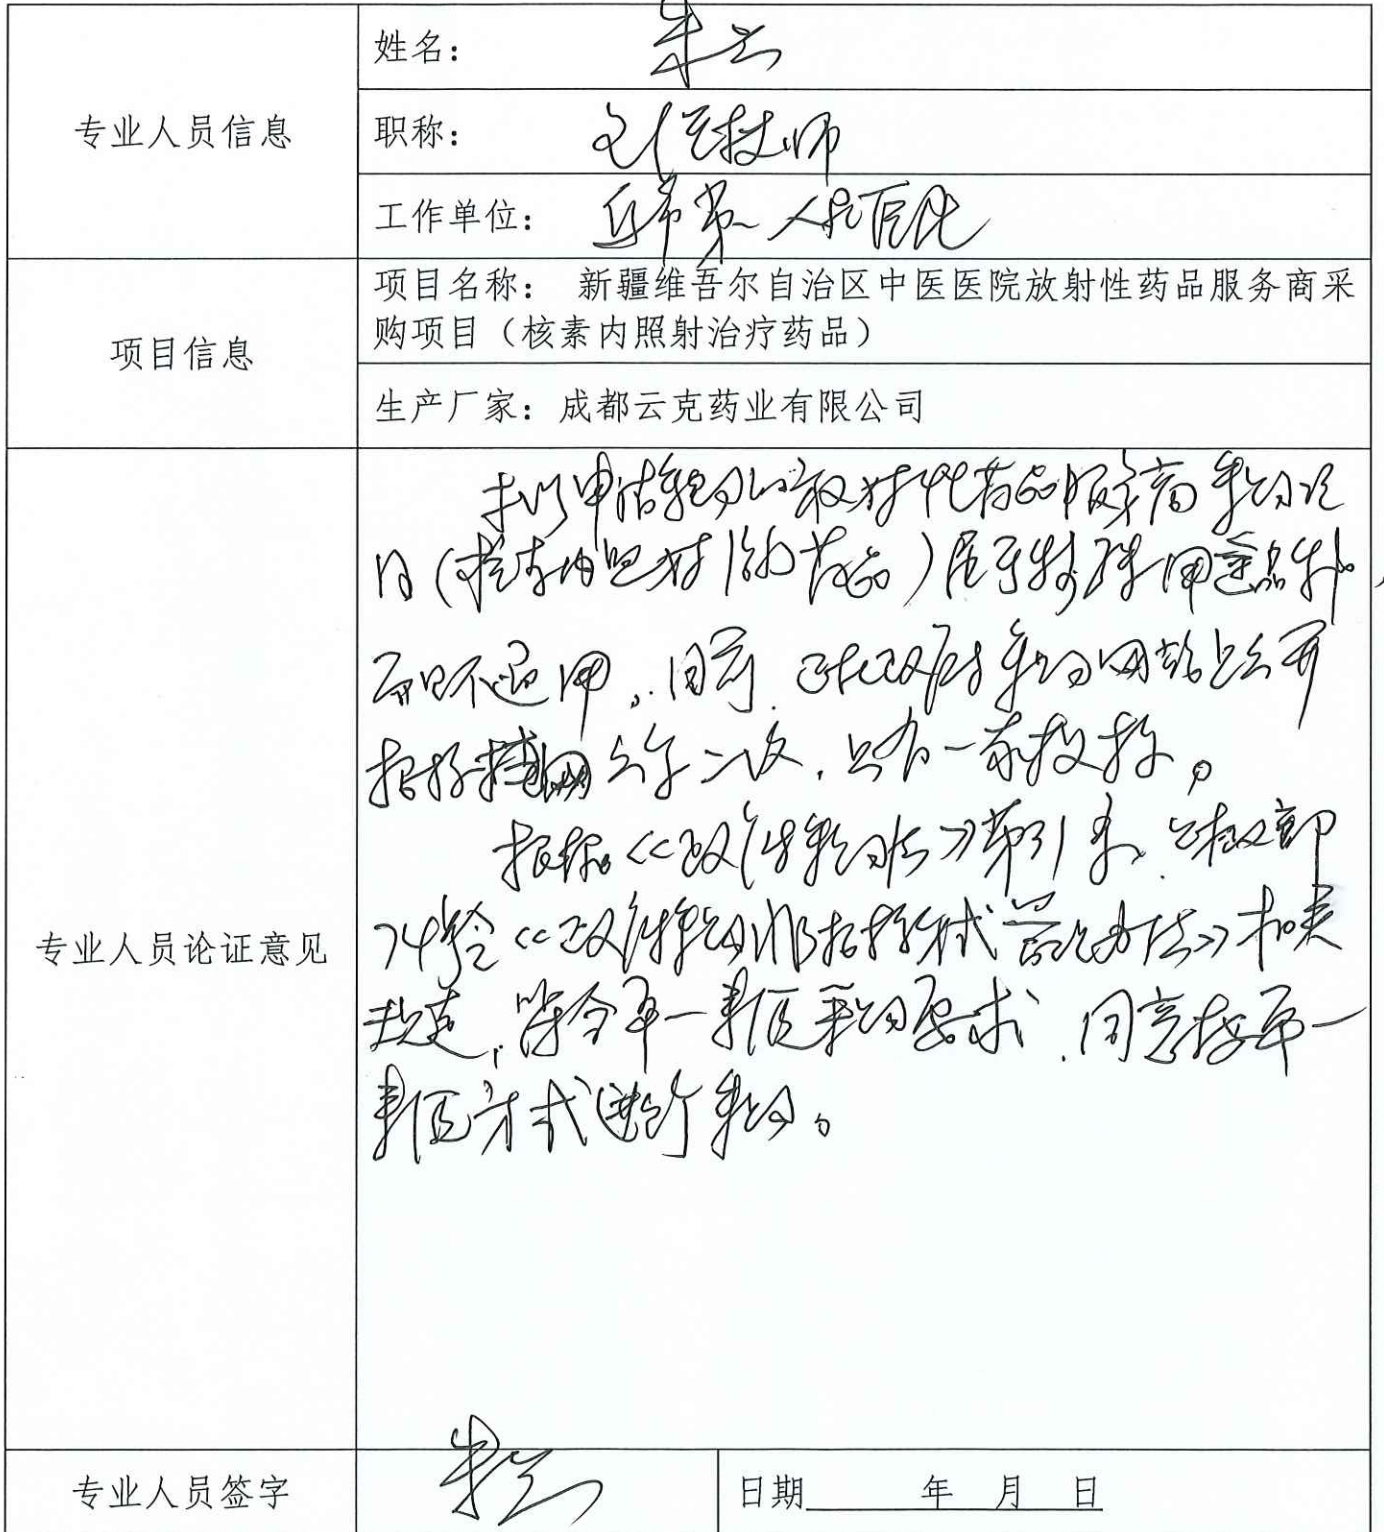 姓名： 朱云
专业人员信息
职称： 主任技师
工作单位： 市第一人民医院
项目名称： 新疆维吾尔自治区中医医院放射性药品服务商采
购项目（核素内照射治疗药品）
项目信息
生产厂家：成都云克药业有限公司
专业人员论证意见
拟申请采购的放射性药品服务商采购项
目（核素内照射治疗药品）属于特殊用途品种，
不通用。目前，已在政府采购网站公开
招标 公告二次，只有一家投标。
根据《政府采购法》第31条、财政部
74号令《政府采购非招标方式管理办法》相关
规定，符合单一来源采购要求，同意按单一
来源方式进行采购。
专业人员签字 朱云 日期 年 月 日